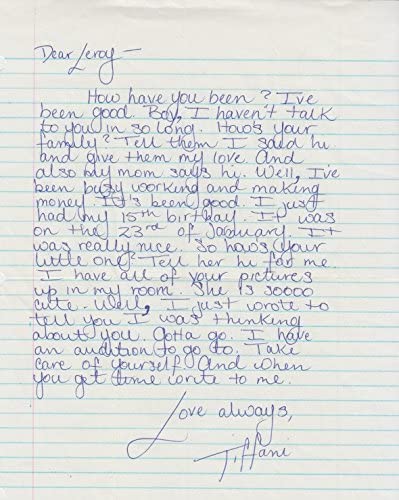 Dear Leroy —
How have you been? I've
been good. Boy, I haven't talk
to you in so long. How's your
family? Tell them I said hi
and give them my love. And
also my mom says hi. Well, I've
been busy working and making
money. It's been good. I just
had my 15th birthay. It was
on the 23rd of January. It
was really nice. So how's your
little one? Tell her hi for me.
I have all of your pictures
up in my room. She is soooo
cute. Well, I just wrote to
tell you I was thinking
about you. Gotta go. I have
an audition to go to. Take
care of yourself. And when
you get time write to me.
Love always,
Tiffani